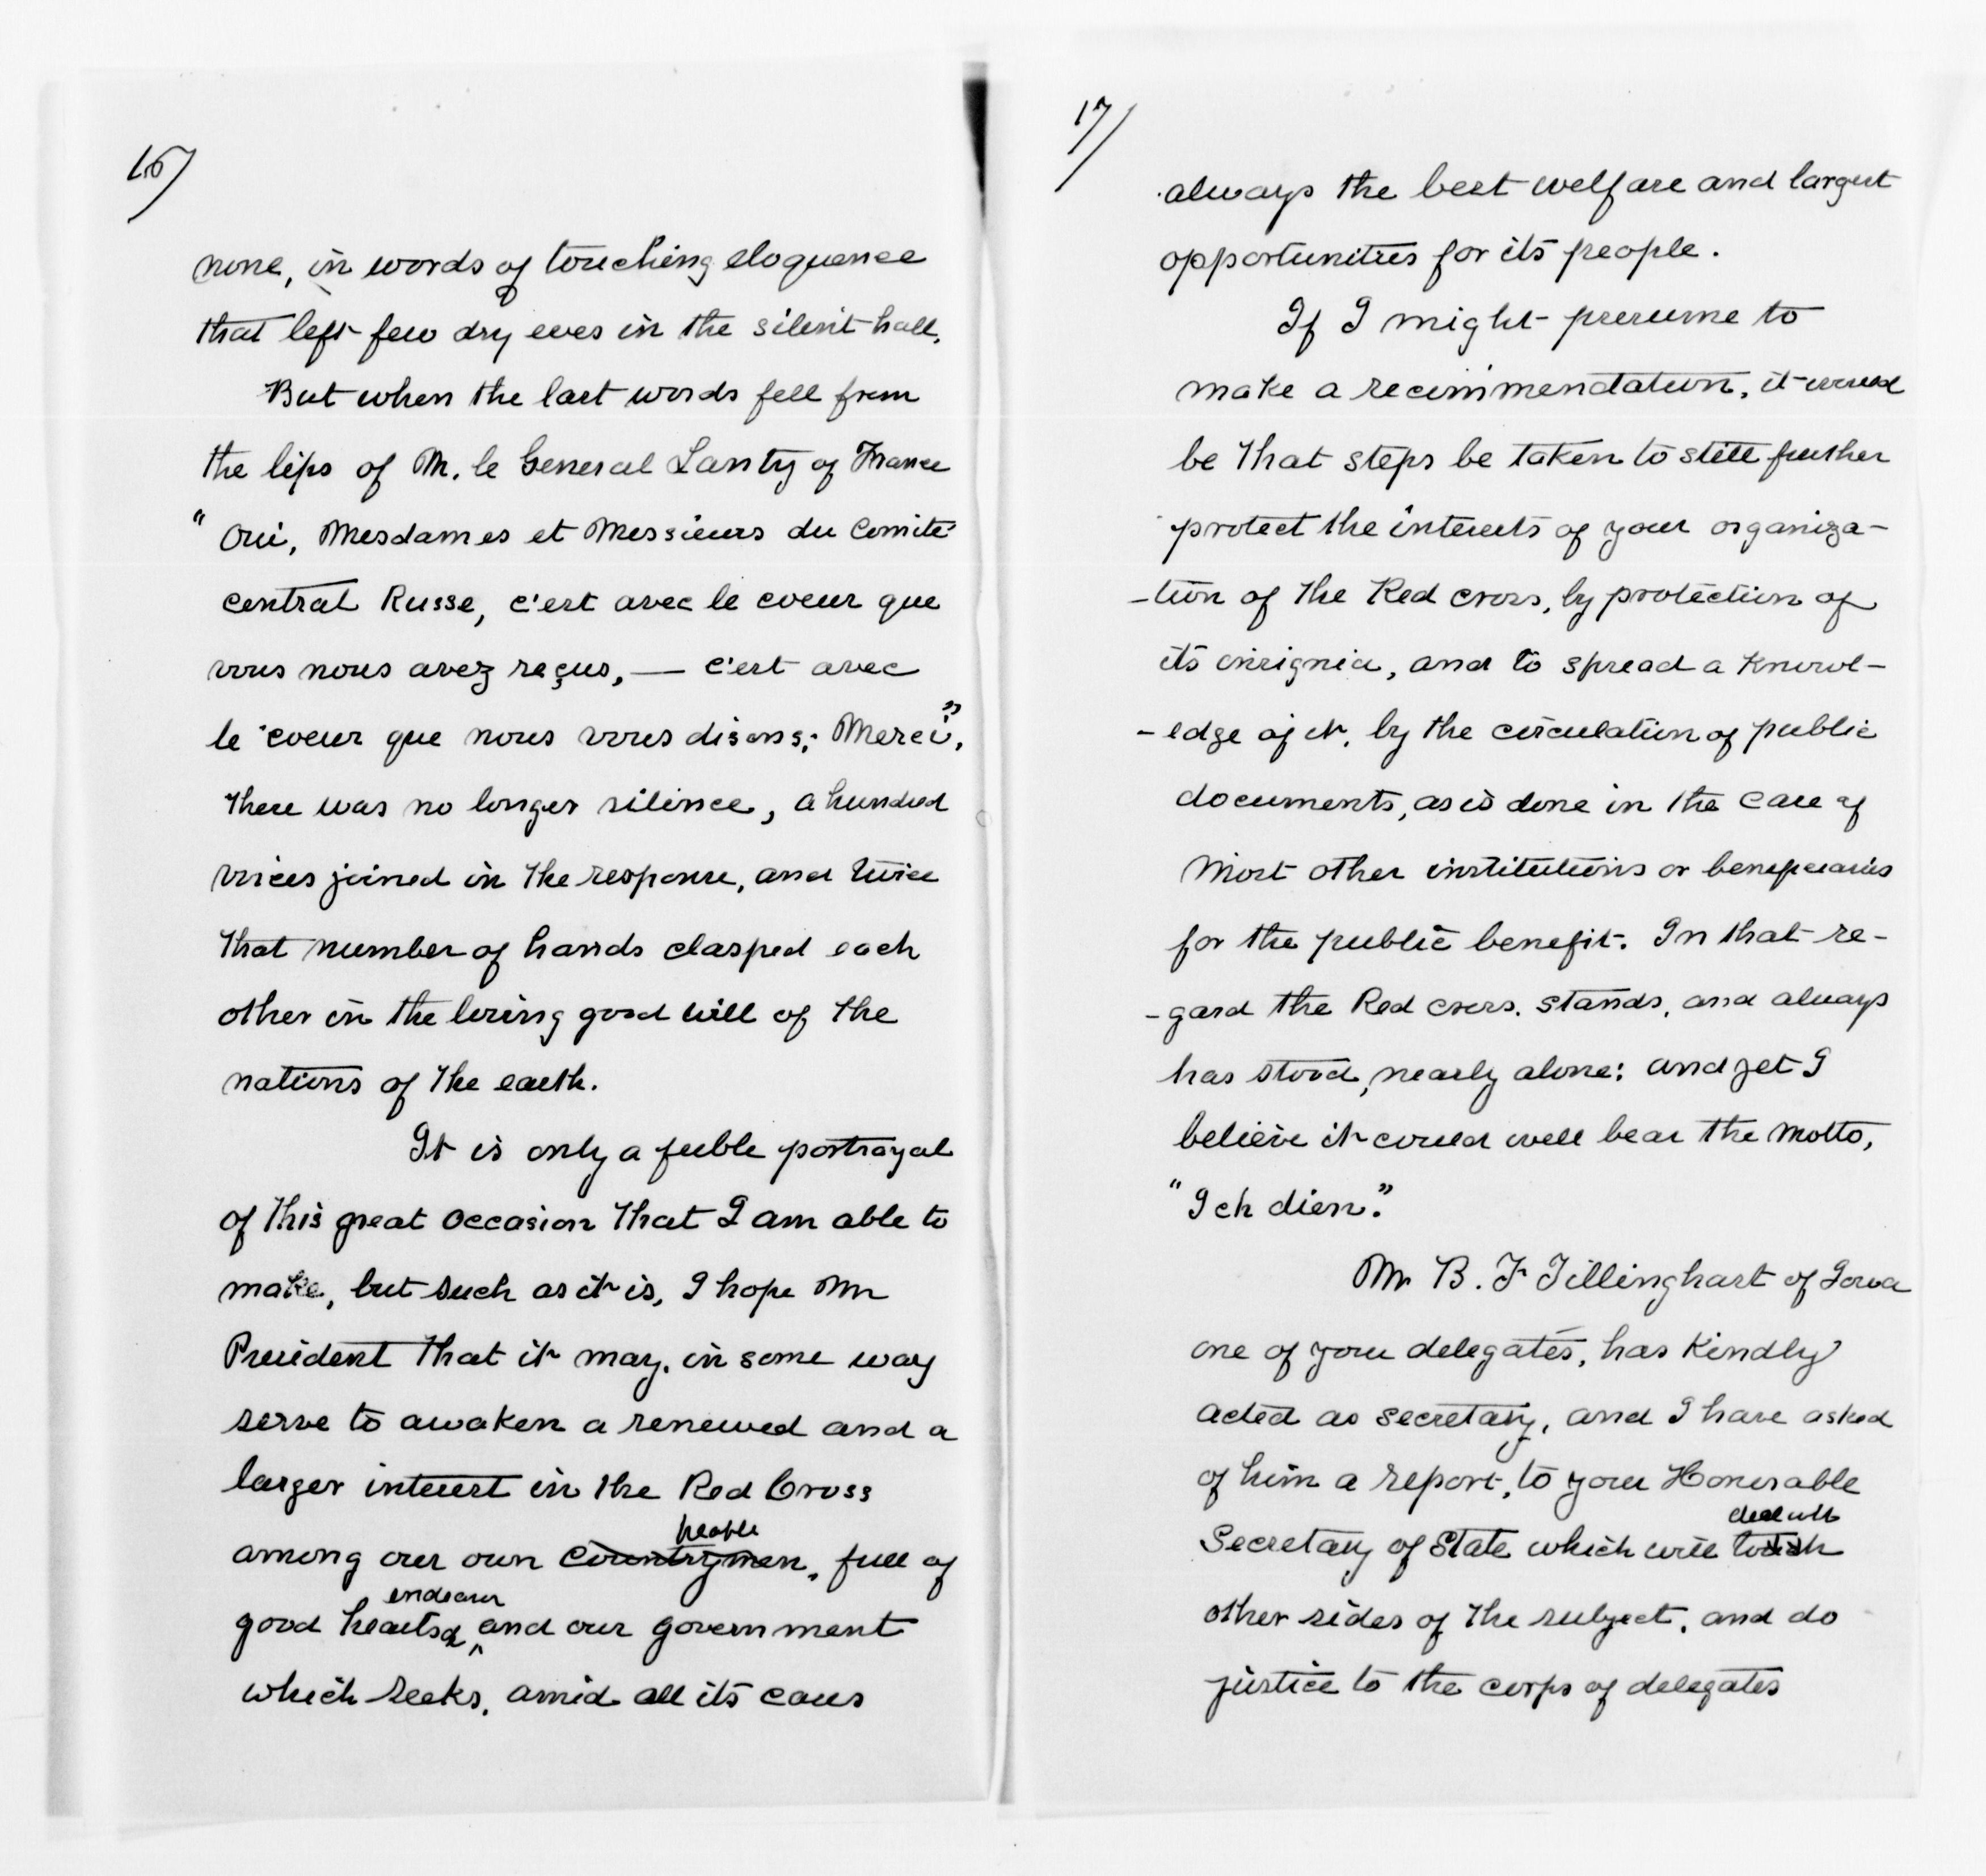 16/
none, in words of touching eloquence
that left few dry eyes in the silent hall.
But when the last words fell from
the lips of M. le General Lanty of France
"Oui, Mesdames et Messieurs du Comité
central Russe, c'est avec le coeur que
vous nous avez reçus, — c'est avec
le coeur que nous vous disons; Merci",
there was no longer silence, a hundred
voices joined in the response, and twice
that number of hands clasped each
other in the loving good will of the
nations of the earth.
It is only a feeble portrayal
of this great occasion that I am able to
make, but such as it is, I hope Mr
President that it may, in some way
serve to awaken a renewed and a
larger interest in the Red Cross
people
among our own countrymen, full of
endeavor
good hearts & and our government
which seeks, amid all its cares
17/
always the best welfare and largest
opportunities for its people.
If I might presume to
make a recommendation, it would
be that steps be taken to still further
protect the interests of your organiza-
-tion of the Red cross, by protection of
its insignia, and to spread a knowl-
-edge of it, by the circulation of public
documents, as is done in the case of
most other institutions or beneficiaries
for the public benefit. In that re-
-gard the Red cross. stands, and always
has stood, nearly alone: and yet I
believe it could well bear the motto,
"Ich dien."
Mr B. F Tillinghast of Iowa
one of your delegates, has kindly
acted as secretary, and I have asked
of him a report, to your Honorable
deal with
Secretary of State which will touch
other sides of the subject, and do
justice to the corps of delegates